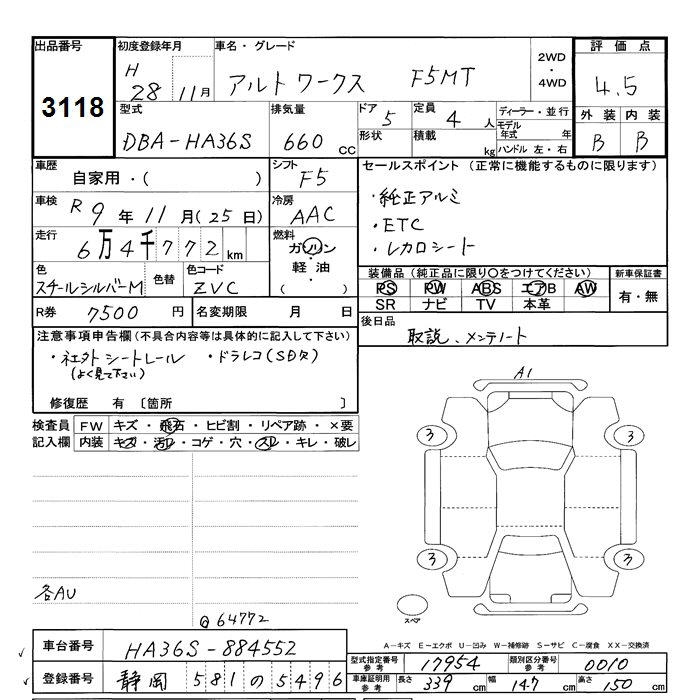 出品番号 初度登録年月 車名・グレード 評価点
3118 H 28 11月 アルト ワークス F5MT 2WD・4WD 4.5
型式 排気量 ドア 定員 ディーラー・並行 外装 内装
DBA-HA36S 660 cc 5 4人 モデル年式 年 B B
形状 積載 kg ハンドル 左・右
車歴 シフト セールスポイント (正常に機能するものに限ります)
自家用・( ) F5
・純正アルミ
車検 R 9年 11月(25日) 冷房 AAC
・ETC
走行 6万4千772km 燃料 ガソリン・軽油・( )
・レカロシート
色 色替 色コード 装備品(純正品に限り〇をつけてください) 新車保証書
スチールシルバーM ZVC PS PW ABS エアB AW 有・無
SR ナビ TV 本革
R券 7500円 名変期限 月 日
後日品
取説、メンテノート
注意事項申告欄(不具合内容等は具体的に記入して下さい)
・ドラレコ(SD欠)
(よく見て下さい)
修復歴 有 〔箇所 〕
検査員記入欄 FW キズ・飛石・ヒビ割・リペア跡・×要
内装 キズ・汚れ・コゲ・穴・スレ・キレ・破レ
A1
3 3
3 3
スペア
各AU
@64772
A-キズ E-エクボ U-凹み W-補修跡 S-サビ C-腐食 XX-交換済
車台番号 HA36S-884552
型式指定番号参考 17954 類別区分番号参考 0010
登録番号 静岡 581 の 5496
車庫証明用参考 長さ 339cm 幅 147cm 高さ 150cm